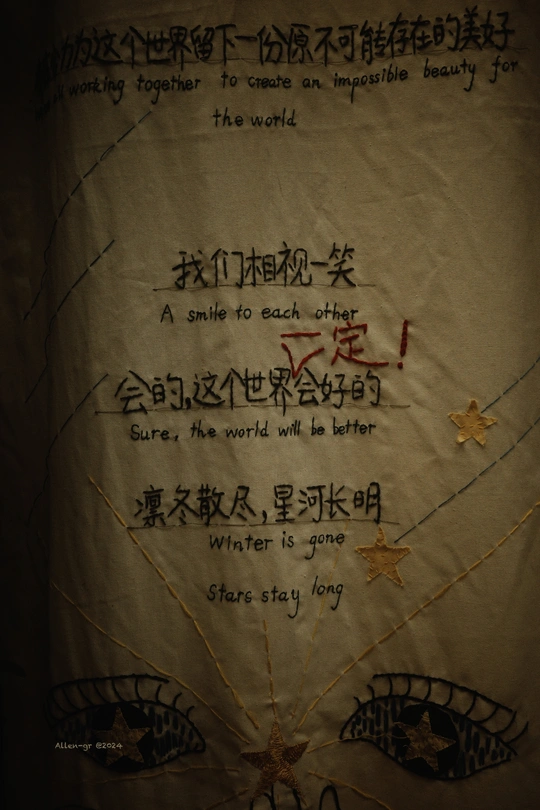 为这个世界留下一份原不可能存在的美好
working together to create an impossible beauty for
the world
我们相视一笑
A smile to each other
一定!
会的,这个世界会好的
Sure, the world will be better
凛冬散尽,星河长明
Winter is gone
Stars stay long
Allen-gr @2024